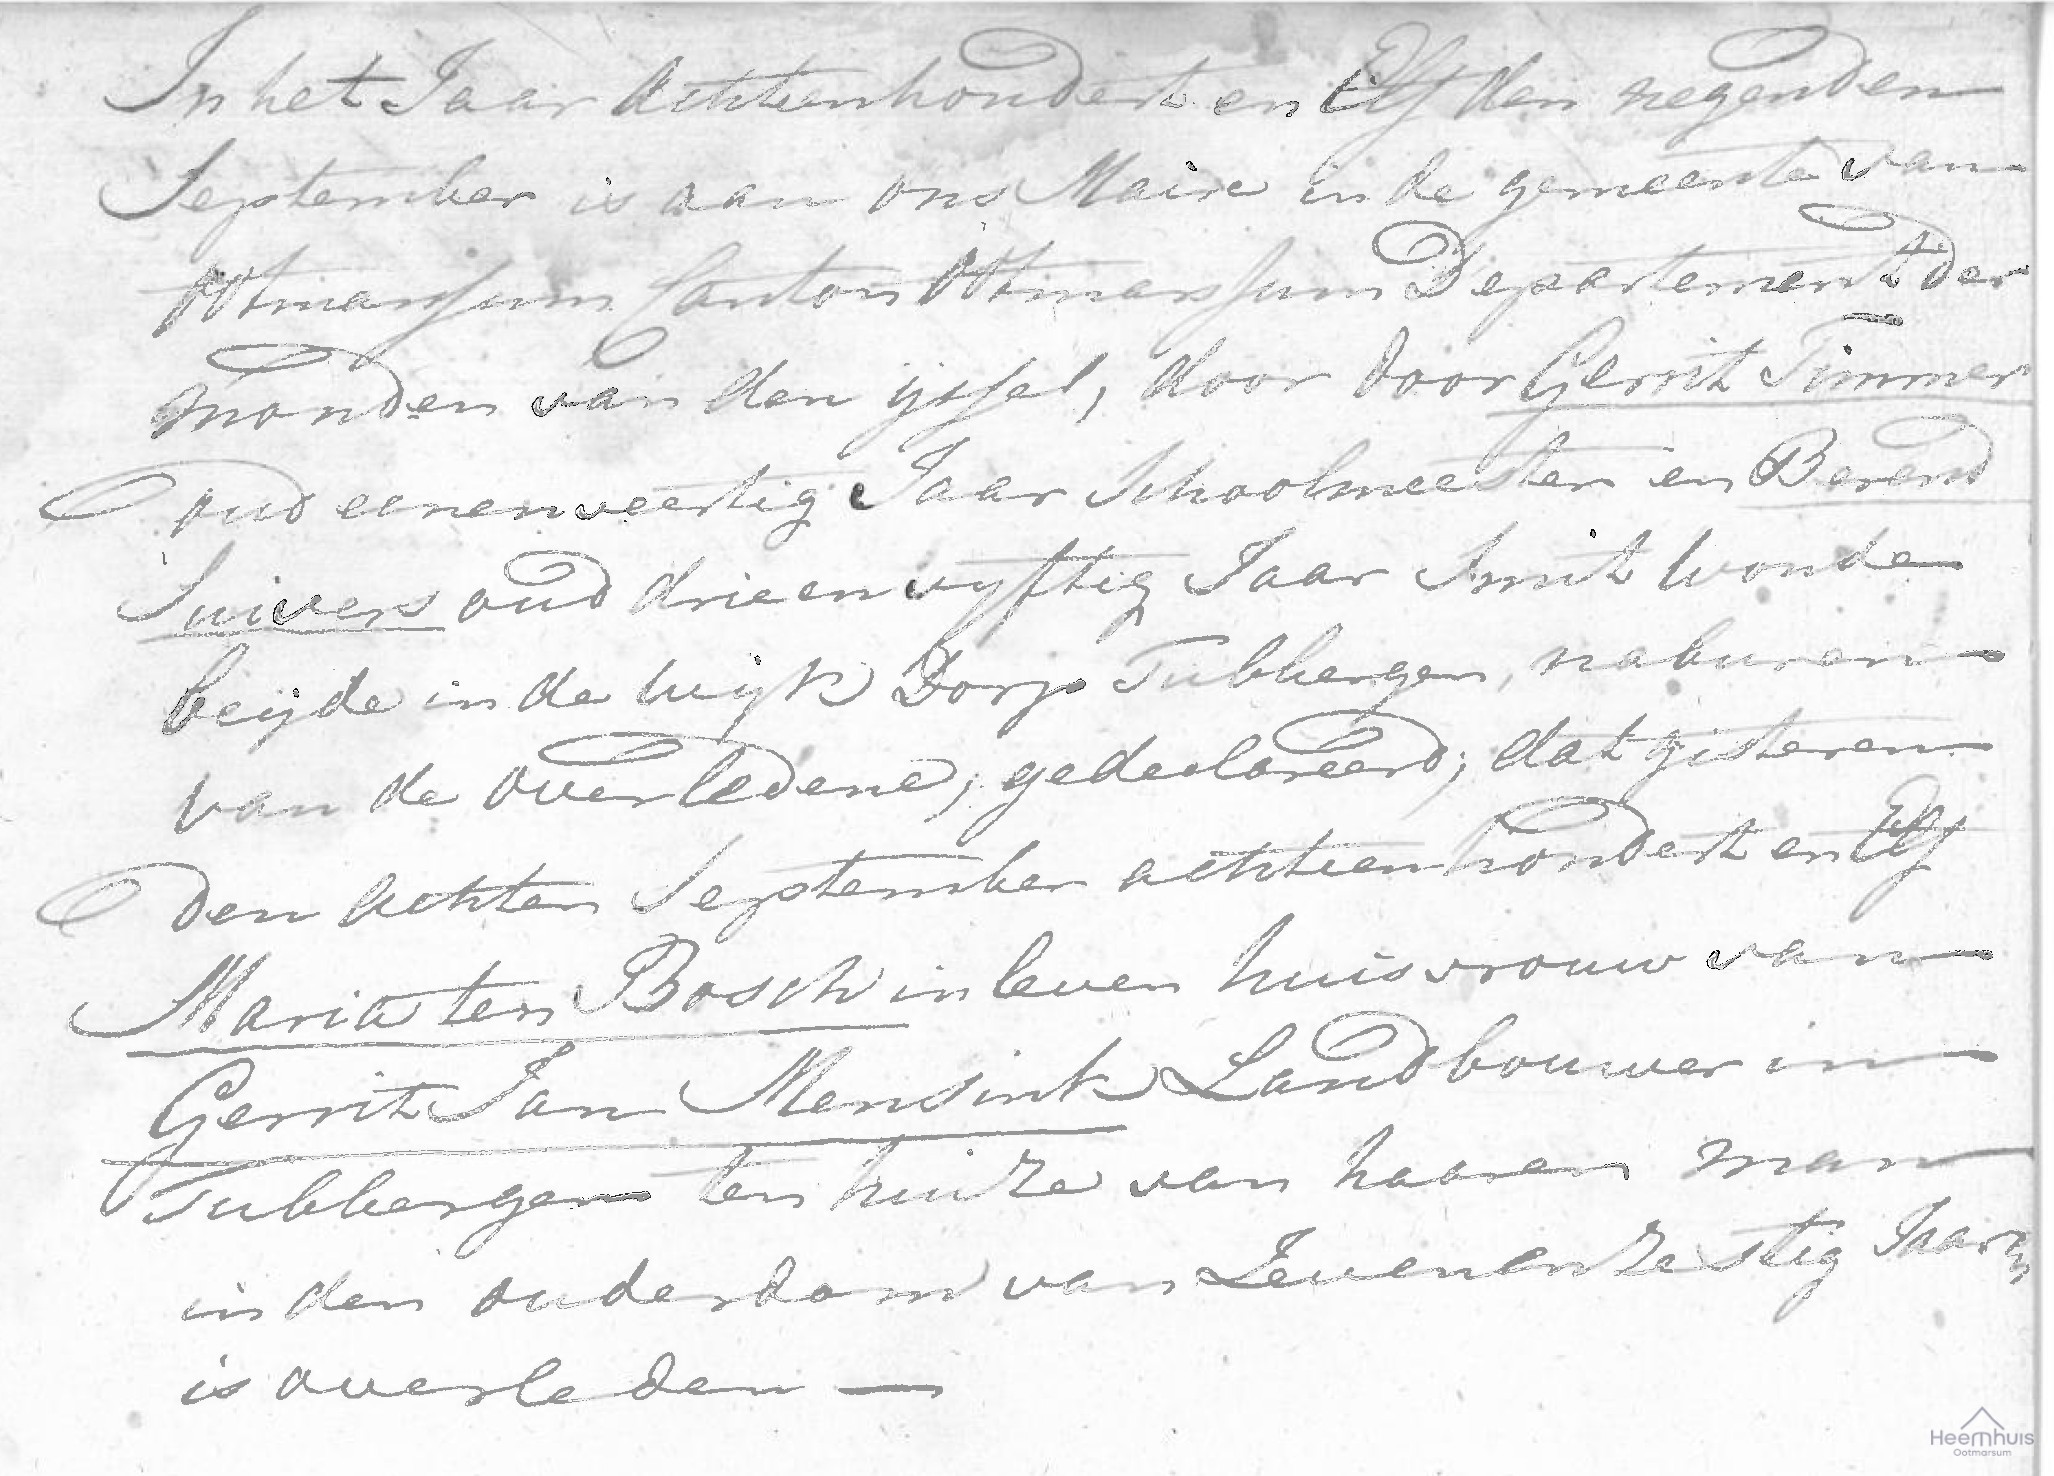 In het Jaar Achttienhondert en Elf den negenden
September is aan ons Maire in de gemeente van
Otmarssum Canton Otmarssum Departement der
monden van den ijssel, door door Gerrit Timmer
oud eenenveertig Jaar Schoolmeester en Berend
Suivers oud drie en vyftig Jaar Smit wonde
beijde in de wijk Dorp Tubbergen, naburen
van de overledene, gedeclareerd; dat gisteren
den achten September achttienhondert en Elf
Maria ten Bosch in leven huisvrouw van
Gerrit Jan Mensink Landbouwer in
Tubbergen ten huize van haaren man
in den ouderdom van Zevenenzestig Jaaren
is overleden —
Heemhuis
Ootmarsum